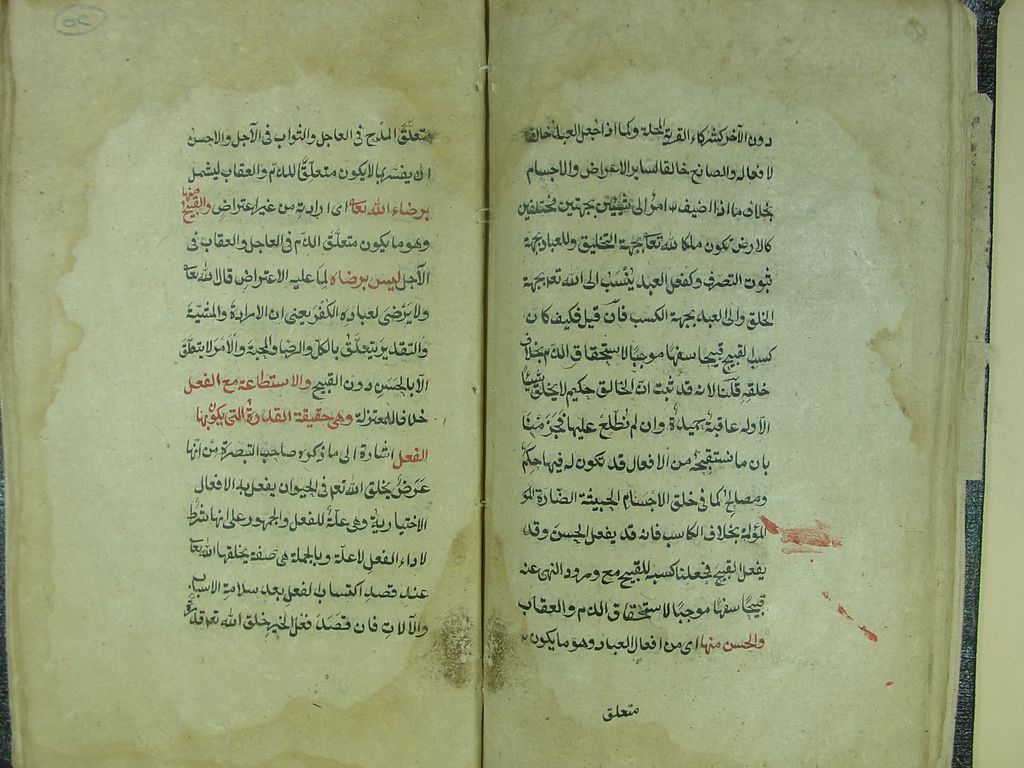 دون الآخر كشركاء القرية والمحلة وكما اذا جعل العبد خالقا
لافعاله والصانع خالقا لسائر الاعراض والاجسام
بخلاف ما اذا اضيف امر الى شيئين بجهتين مختلفين
كالارض تكون ملكا لله تعا بجهة التخليق وللعباد بجهة
ثبوت التصرف وكفعل العبد ينسب الى الله تع بجهة
الخلق والى العبد بجهة الكسب فان قيل فكيف كان
كسب القبيح قبيحا سفها موجبا لاستحقاق الذم بخلاف
خلقه قلنا لانه قد ثبت ان الخالق حكيم لا يخلق شيئا
الا وله عاقبة حميدة وان لم نطلع عليها فجزمنا
بان ما نستقبحه من الافعال قد تكون له فيها حكم
ومصالح كما فى خلق الاجسام الخبيثة الضارة
المؤلمة بخلاف الكاسب فانه قد يفعل الحسن وقد
يفعل القبيح فجعلنا كسبه للقبيح مع ورود النهى عنه
قبيحا سفها موجبا لاستحقاق الذم والعقاب
والحسن منها اى من افعال العباد وهو ما يكون
متعلق
متعلق المدح فى العاجل والثواب فى الآجل والاحسن
ان يفسر بما لا يكون متعلقا للذم والعقاب ليشمل
برضاء الله تعا اى ارادته من غير اعتراض والقبيح منها
وهو ما يكون متعلق الذم فى العاجل والعقاب فى
الآجل ليس برضاه لما عليه الاعتراض قال الله تعا
ولا يرضى لعباده الكفر يعنى ان الارادة والمشية
والتقدير يتعلق بالكل والرضا والمحبة والامر لا يتعلق
الا بالحسن دون القبيح والاستطاعة مع الفعل
خلافا للمعتزلة وهى حقيقة القدرة التى يكون بها
الفعل اشارة الى ما ذكره صاحب التبصرة من انها
عرض يخلق الله تع فى الحيوان يفعل به الافعال
الاختيارية وهى علة للفعل والجمهور على انها شرط
لاداء الفعل لا علة وبالجملة هى صفة يخلقها الله تعا
عند قصد اكتساب الفعل بعد سلامة الاسباب
والآلات فان قصد فعل الخير خلق الله تع قدرة